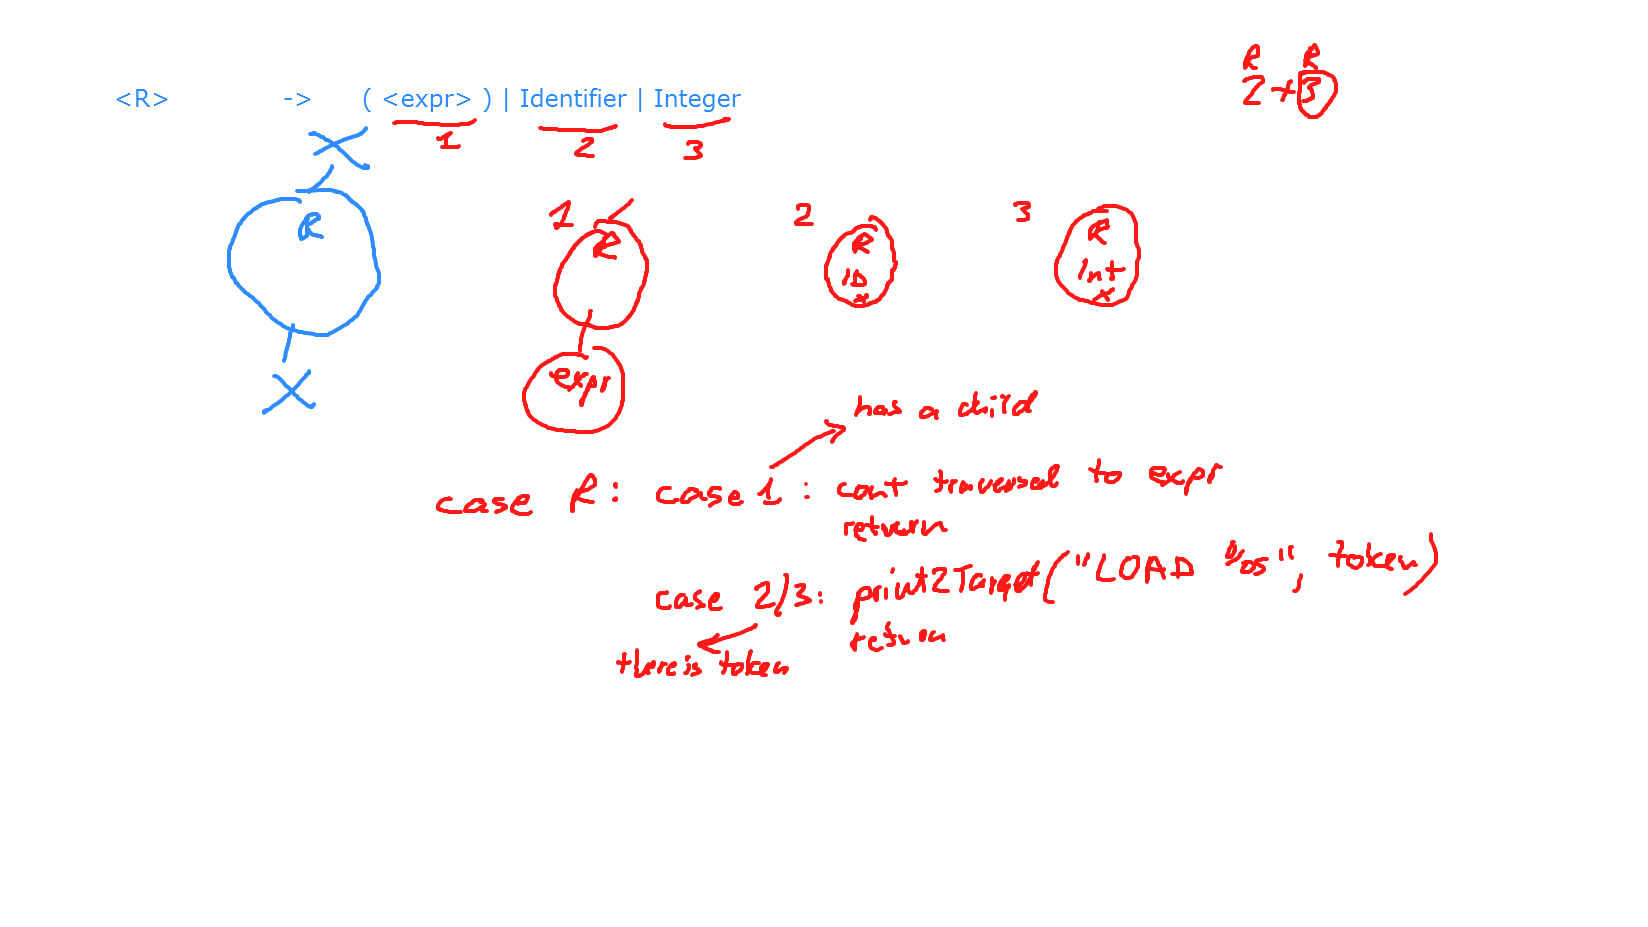 R R
2+3
<R> -> ( <expr> ) | Identifier | Integer
1 2 3
X
R
X
1 R
expr
2 R
ID
x
3 R
Int
x
has a child
case R: case 1: cont traversed to expr
return
case 2/3: print2Target("LOAD %s", token)
return
there is token